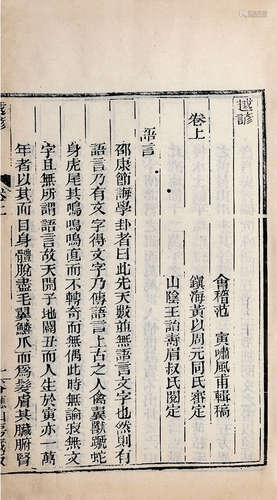 越諺
卷上
會稽范　寅嘯風甫輯稿
鎮海黃以周元同氏審定
山陰王詒壽眉叔氏閱定
語言
邵康節誨學卦者曰此先天斅並無語言文字也然則有
語言乃有文字得文字乃傳語言上古之人禽翼獸蹏蛇
身虎尾其鳴嗚嗚直而不轉奇而無偶此時無論衣無文
字且無所謂語言故天開子地闢丑而人生於寅亦一萬
年者以其而目身體脫盡毛翼鱗爪而為髮眉其臟腑腎
越諺
卷上